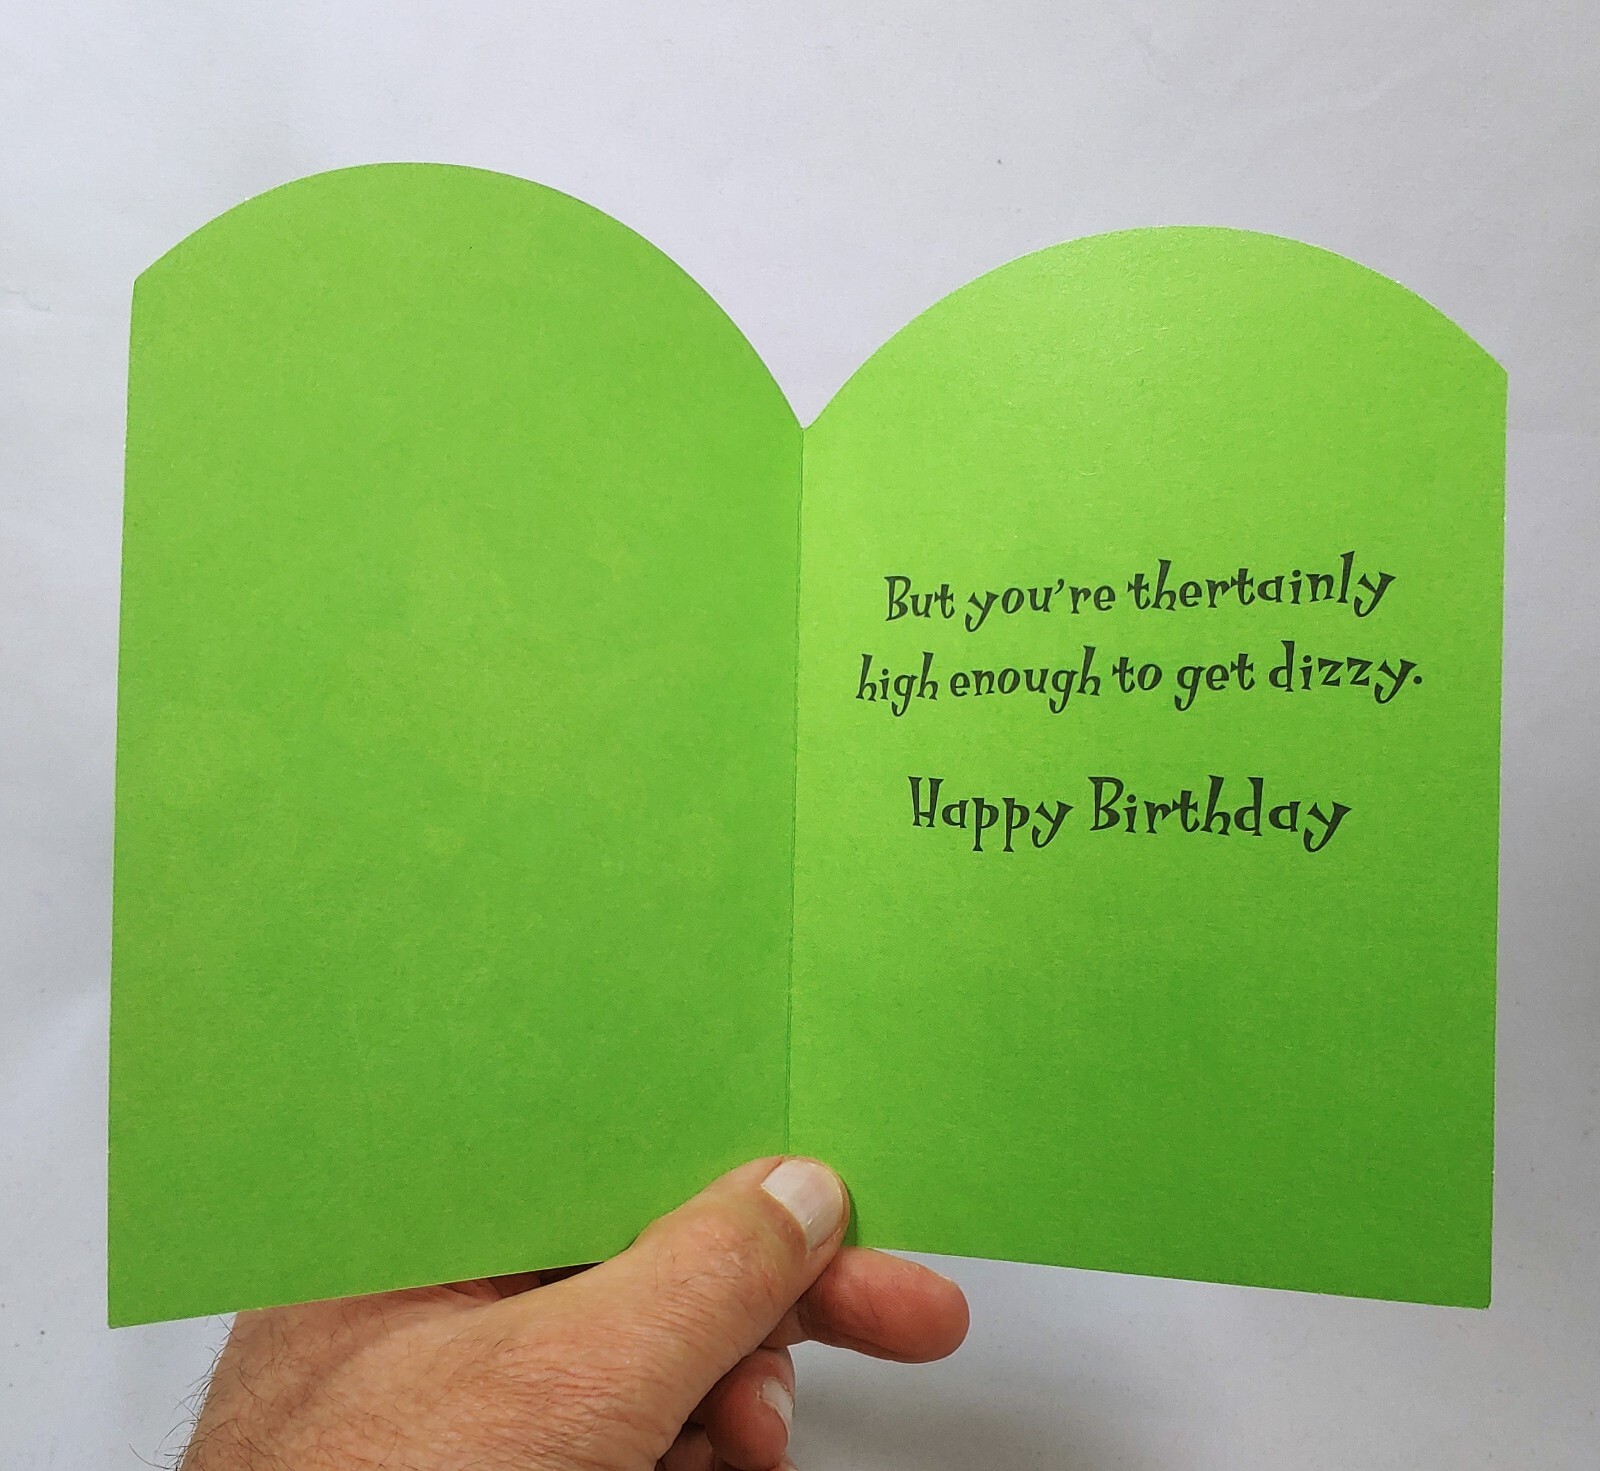 But you're thertainly
high enough to get dizzy.
Happy Birthday